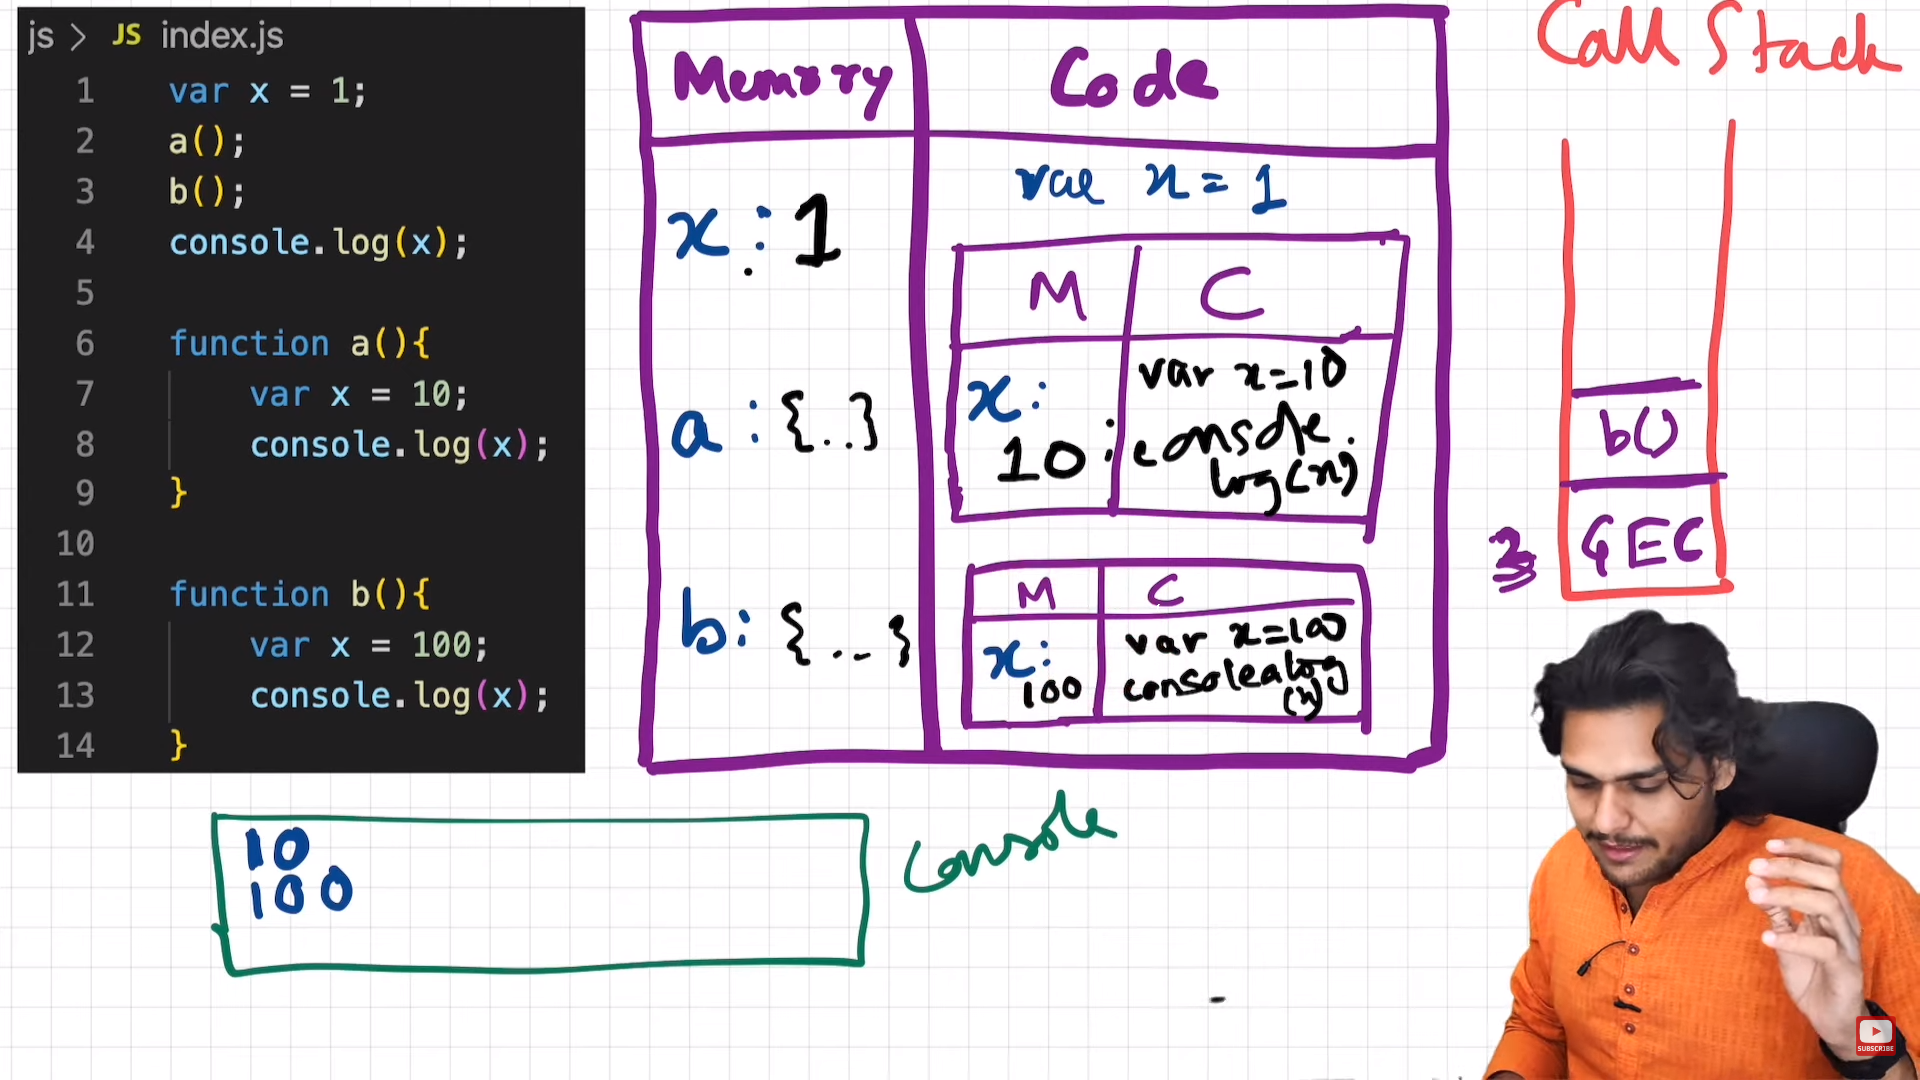 js > JS index.js
1 var x = 1;
2 a();
3 b();
4 console.log(x);
5
6 function a(){
7 var x = 10;
8 console.log(x);
9 }
10
11 function b(){
12 var x = 100;
13 console.log(x);
14 }
Memory Code
x : 1
a : {..}
b: {..}
var x = 1
M C
x:
10
var x=10
console.
log(x)
M C
x:
100
var x=100
console.log
(x)
Call Stack
b()
GEC
10
100
Console
SUBSCRIBE